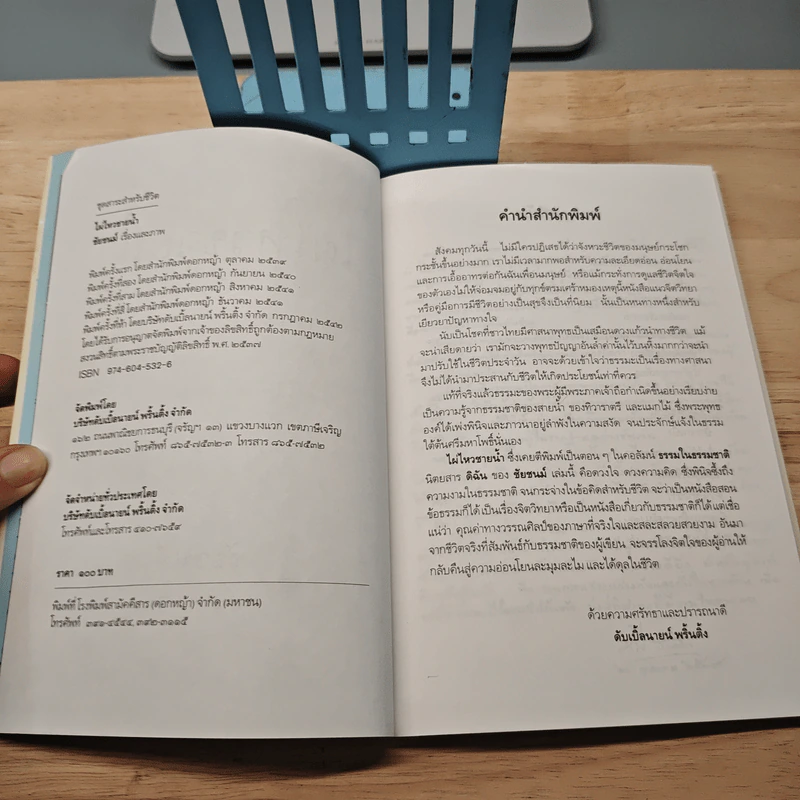 ชุดสาระสำหรับชีวิต
ไผ่ไหวชายน้ำ
ชัยชนม์ เรื่องและภาพ
พิมพ์ครั้งแรก โดยสำนักพิมพ์ดอกหญ้า ตุลาคม ๒๕๓๙
พิมพ์ครั้งที่สอง โดยสำนักพิมพ์ดอกหญ้า กันยายน ๒๕๔๐
พิมพ์ครั้งที่สาม โดยสำนักพิมพ์ดอกหญ้า สิงหาคม ๒๕๔๑
พิมพ์ครั้งที่สี่ โดยสำนักพิมพ์ดอกหญ้า ธันวาคม ๒๕๔๑
พิมพ์ครั้งที่ห้า โดยบริษัทดับเบิ้ลนายน์ พริ้นติ้ง จำกัด กรกฎาคม ๒๕๔๒
โดยได้รับการอนุญาตจัดพิมพ์จากเจ้าของลิขสิทธิ์ถูกต้องตามกฎหมาย
สงวนสิทธิ์ตามพระราชบัญญัติลิขสิทธิ์ พ.ศ. ๒๕๓๗
ISBN 974-604-532-6
จัดพิมพ์โดย
บริษัทดับเบิ้ลนายน์ พริ้นติ้ง จำกัด
๑๖๒ ถนนพาณิชยการธนบุรี (จรัญฯ ๑๓) แขวงบางแวก เขตภาษีเจริญ
กรุงเทพฯ ๑๐๑๖๐ โทรศัพท์ ๘๖๕-๗๕๓๒-๓ โทรสาร ๘๖๕-๗๕๓๒
จัดจำหน่ายทั่วประเทศโดย
บริษัทดับเบิ้ลนายน์ พริ้นติ้ง จำกัด
โทรศัพท์และโทรสาร ๔๑๐-๗๖๕๙
ราคา ๑๐๐ บาท
พิมพ์ที่ โรงพิมพ์สามัคคีสาร (ดอกหญ้า) จำกัด (มหาชน)
โทรศัพท์ ๓๙๑-๔๕๔๔, ๓๙๒-๓๑๑๕
คำนำสำนักพิมพ์
สังคมทุกวันนี้ ไม่มีใครปฏิเสธได้ว่าจังหวะชีวิตของมนุษย์กระโชก
กระชั้นขึ้นอย่างมาก เราไม่มีเวลามากพอสำหรับความละเอียดอ่อน อ่อนโยน
และการเอื้ออาทรต่อกันฉันเพื่อนมนุษย์ หรือแม้กระทั่งการดูแลชีวิตจิตใจ
ของตัวเองไม่ให้จ่อมจมอยู่กับทุกข์ตรมเศร้าหมองเหตุนี้หนังสือแนวจิตวิทยา
หรือคู่มือการมีชีวิตอย่างเป็นสุขจึงเป็นที่นิยม นั้นเป็นหนทางหนึ่งสำหรับ
เยียวยาปัญหาทางใจ
นับเป็นโชคที่ชาวไทยมีศาสนาพุทธเป็นเสมือนดวงแก้วนำทางชีวิต แม้
จะน่าเสียดายว่า เรามักจะวางพุทธปัญญาอันล้ำค่านั้นไว้บนหิ้งมากกว่าจะนำ
มาปรับใช้ในชีวิตประจำวัน อาจจะด้วยเข้าใจว่าธรรมะเป็นเรื่องทางศาสนา
จึงไม่ได้นำมาประสานกับชีวิตให้เกิดประโยชน์เท่าที่ควร
แท้ที่จริงแล้วธรรมะของพระผู้มีพระภาคเจ้าถือกำเนิดขึ้นอย่างเรียบง่าย
เป็นความรู้จากธรรมชาติของสายน้ำ ของทิวาราตรี และแมกไม้ ซึ่งพระพุทธ
องค์ได้เพ่งพินิจและภาวนาอยู่ลำพังในความสงัด จนประจักษ์แจ้งในธรรม
ใต้ต้นศรีมหาโพธิ์นั่นเอง
ไผ่ไหวชายน้ำ ซึ่งเคยตีพิมพ์เป็นตอน ๆ ในคอลัมน์ ธรรมในธรรมชาติ
นิตยสาร ดิฉัน ของ ชัยชนม์ เล่มนี้ คือดวงใจ ดวงความคิด ซึ่งพินิจซึ้งถึง
ความงามในธรรมชาติ จนกระจ่างในข้อคิดสำหรับชีวิต จะว่าเป็นหนังสือสอน
ข้อธรรมก็ได้ เป็นเรื่องจิตวิทยาหรือเป็นหนังสือเกี่ยวกับธรรมชาติก็ได้ แต่เชื่อ
แน่ว่า คุณค่าทางวรรณศิลป์ของภาษาที่จริงใจและสละสลวยสวยงาม อันมา
จากชีวิตจริงที่สัมพันธ์กับธรรมชาติของผู้เขียน จะจรรโลงจิตใจของผู้อ่านให้
กลับคืนสู่ความอ่อนโยนละมุนละไม และได้ดุลในชีวิต
ด้วยความศรัทธาและปรารถนาดี
ดับเบิ้ลนายน์ พริ้นติ้ง